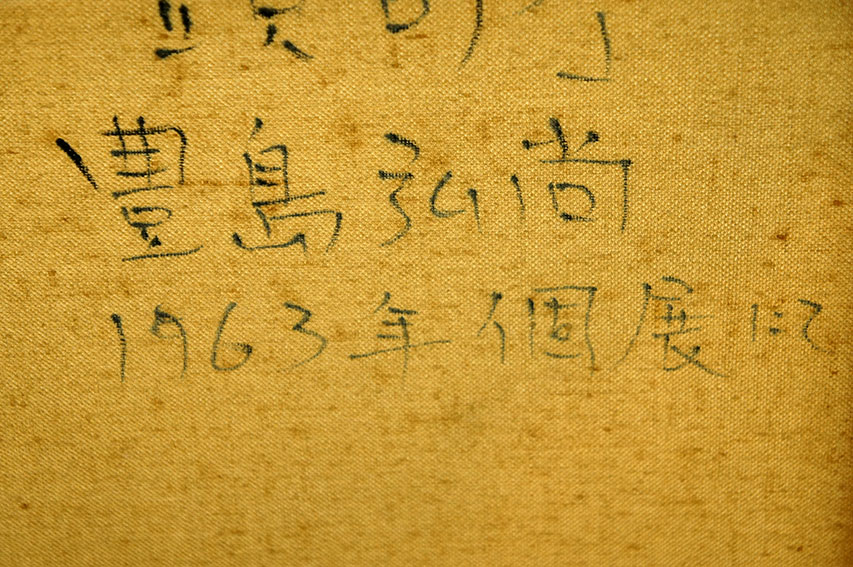 豊島弘尚
1963年個展にて